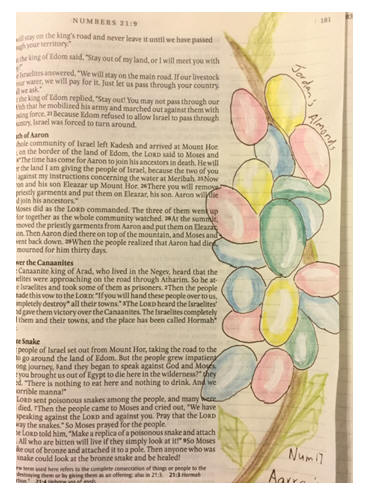 NUMBERS 21:9
181
will stay on the king's road and never leave it until we have passed
through your territory."
the king of Edom said, "Stay out of my land, or I will meet you with
Israelites answered, "We will stay on the main road. If our livestock
your water, we will pay for it. Just let us pass through your country.
all we ask."
the king of Edom replied, "Stay out! You may not pass through our
With that he mobilized his army and marched out against them with
posing force. 21 Because Edom refused to allow Israel to pass through
country, Israel was forced to turn around.
th of Aaron
whole community of Israel left Kadesh and arrived at Mount Hor.
, on the border of the land of Edom, the LORD said to Moses and
24 "The time has come for Aaron to join his ancestors in death. He will
the land I am giving the people of Israel, because the two of you
against my instructions concerning the water at Meribah. 25 Now
on and his son Eleazar up Mount Hor. 26 There you will remove
priestly garments and put them on Eleazar, his son. Aaron will die
d join his ancestors."
Moses did as the LORD commanded. The three of them went up
Hor together as the whole community watched. 28 At the summit,
moved the priestly garments from Aaron and put them on Eleazar,
on. Then Aaron died there on top of the mountain, and Moses and
went back down. 29 When the people realized that Aaron had died,
mourned for him thirty days.
ver the Canaanites
Canaanite king of Arad, who lived in the Negev, heard that the
elites were approaching on the road through Atharim. So he at-
e Israelites and took some of them as prisoners. 2 Then the people
made this vow to the LORD: "If you will hand these people over to us,
ompletely destroy* all their towns." 3 The LORD heard the Israelites'
nd gave them victory over the Canaanites. The Israelites completely
d them and their towns, and the place has been called Hormah*
e Snake
people of Israel set out from Mount Hor, taking the road to the
o go around the land of Edom. But the people grew impatient
ong journey, 5 and they began to speak against God and Moses.
you brought us out of Egypt to die here in the wilderness?" they
ed. "There is nothing to eat here and nothing to drink. And we
horrible manna!"
LORD sent poisonous snakes among the people, and many were
died. 7 Then the people came to Moses and cried out, "We have
speaking against the LORD and against you. Pray that the LORD
way the snakes." So Moses prayed for the people.
e LORD told him, "Make a replica of a poisonous snake and attach
All who are bitten will live if they simply look at it!" 9 So Moses
ke out of bronze and attached it to a pole. Then anyone who was
snake could look at the bronze snake and be healed!
term used here refers to the complete consecration of things or people to the
destroying them or by giving them as an offering; also in 21:3. 21:3 Hormah
Jordan's Almonds
Num 17
Aaron